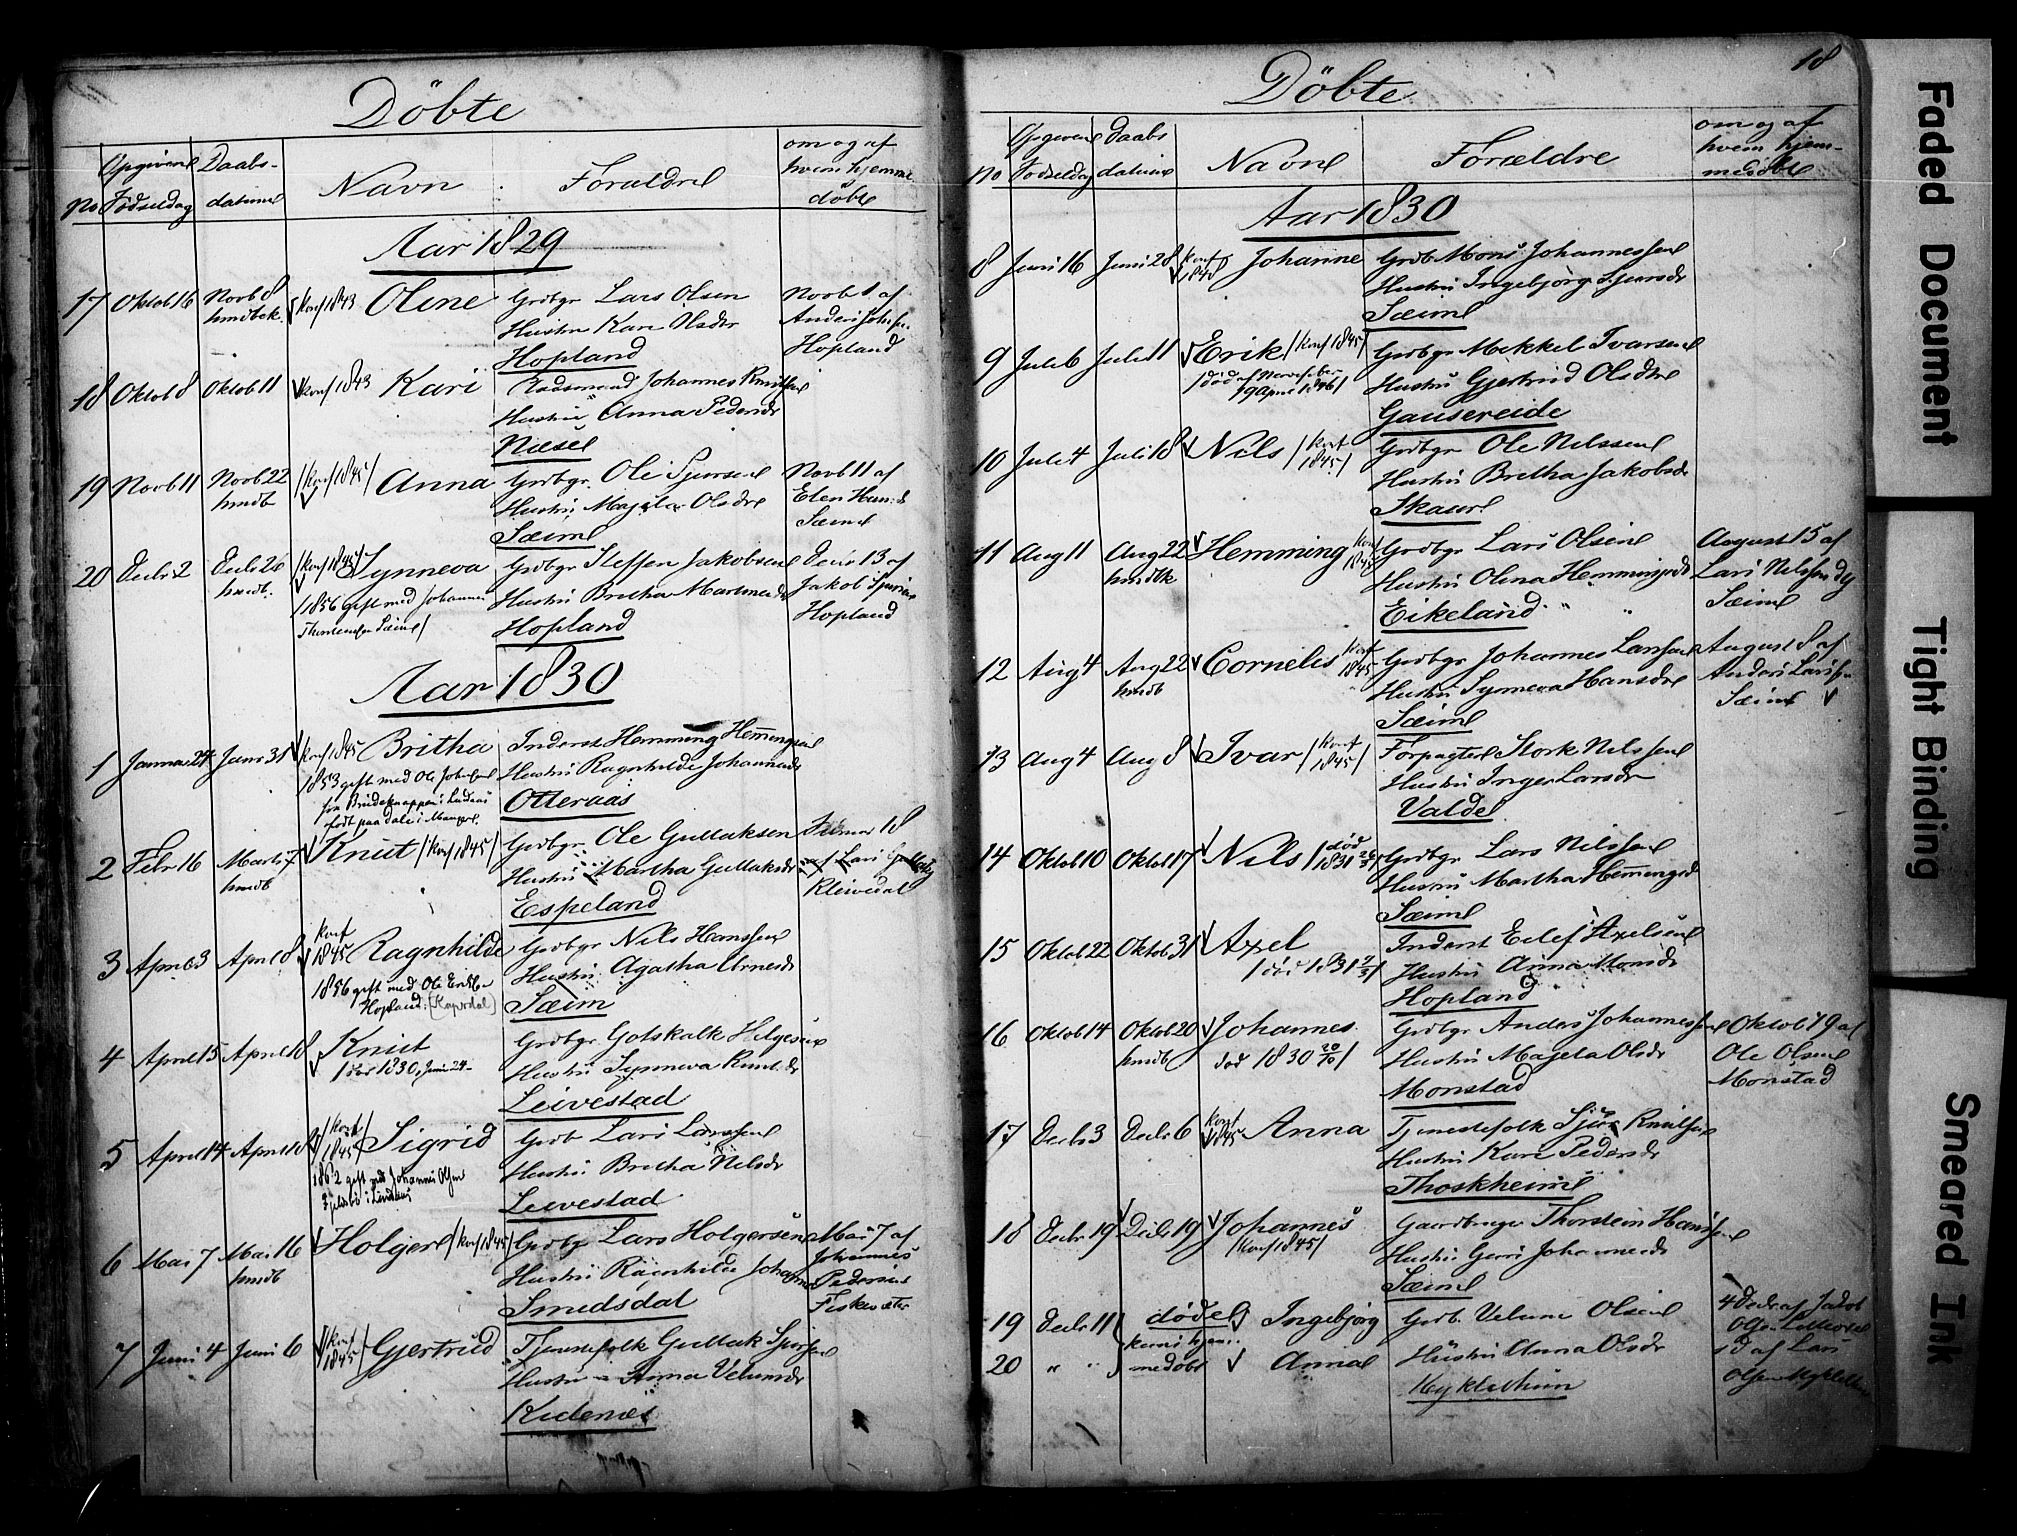 Döbte
No
Opgivene Fødselsdag
Daabs-datum
Navn
Forældre
om og af hvem hjemmedöbte
Aar 1829
17 Oktob 16 Novb 8 hmdbek. konf 1843 Oline Grdbgr Lars Olsen Novb 1 af
Hustru Kari Olsdtr Anders Johs
Hopland Hopland
18 Oktob 8 Oktob 11 konf 1843 Kari Pladsmand Johannes Knutsen
Hustru Anna Pedersdr
Næsel
19 Novb 11 Novb 22 hmdb /konf 1845/ Anna Grdbgr. Ole Sjursen Novb 11 af
Hustru Majela Olsdtr Elen
Sæim Sæim
20 Decbr 2 Decbr 26 hmdb. /konf 1845/ Synneva Grdbgr Steffen Jakobsen Decbr 13 af
/1856 gift med Johannes Hustru Britha Martinesdr Jakob Sjursen
Sæim/ Hopland Hopland
Aar 1830
1 Januar 24 Janr 31 konf 1845 Britha Inderst Hemming Hemmingsen
1853 gift med Ole Hustru Ragnhilde Johannesdr
født paa Dale i Manger. Otteraas
2 Febr 16 Marts 7 hmdb Knut /konf 1845/ Grdbgr. Ole Gullaksen Februar 18
Hustru Martha Gullaksdr af Lars
Espeland Kleivedal
3 April 3 April 8 konf 1845 Ragnhilde Grdbgr Nils Hanssen
1856 gift med Ole Eriksen Hustru Agatha Arnesdr
Hopland. Sæim
4 April 15 April 18 Knut Grdbgr Gotskalk Helgesen
/død 1830, Juni 24 Hustru Synneva Knutsdr
Leivestad
5 April 14 April 18 /konf 1845/ Sigrid Grdb Lars Larssen
1862 gift med Johannes Olsen Hustru Britha Nilsdr
i Lindaas Leivestad
6 Mai 7 Mai 16 hmdb Holger /konf 1845/ Grdbgr Lars Holgersen Mai 7 af
Hustru Ragnhilde Johannes
Pedersen
Smedsdal Fiskesæter
7 Juni 4 Juni 6 /konf 1845/ Gjertrud Tjenestefolk Gullak Sjursen
Hustru Anna Velumsdr
Kidenæs
18
Döbte
No
Opgivene Fødseldag
Daabs datum
Navne
Forældre
om og af hvem hjem-medöbte
Aar 1830
8 Juni 16 Juni 28 konf 1848 Johanne Grdb Mons Johannessen
Hustru Ingebjørg Sjursdr
Sæim
9 Juli 6 Juli 11 Erik /konf 1845/ Grdbgr Mekkel Ivarsen
/død af Nervefeber 19 April 1846/ Hustru Gjertrud Olsdtr
Gausereide
10 Juli 4 Juli 18 Nils /konf 1845/ Grdbgr Ole Nilssen
Hustru Britha Jakobsdr
Skaure
11 Aug 11 Aug 22 hmdbk Hemming konf 1845 Grdbgr Lars Olsen August 15 af
Hustru Olina Hemmingsdr Lars Nilssen
Eikeland " " Sæim
12 Aug 4 Aug 22 hmdb Cornelis konf 1845 Grdbgr Johannes Larssen August 8 af
Hustru Synneva Hansdtr Anders Larssen
Sæim Sæim
13 Aug 4 Aug 8 Ivar /konf 1845/ Forpagter Stork Nilssen
Hustru Inger Larsdr
Valdel
14 Oktob 10 Oktob 17 Nils /død 1831 26/3/ Grdbgr Lars Nilssen
Hustru Martha Hemmingsd
Sæim
15 Oktob 22 Oktob 31 Axel Inderst Eilef Axelsen
/død 1831 7/3/ Hustru Anna Monsdr
Hopland
16 Oktob 14 Oktob 20 hmdb Johannes. Grdbgr Anders Johannessen Oktob 19 af
død 1830 20/10/ Hustru Majela Olsdr Ole Olsen
Monstad Monstad
17 Decbr 3 Decbr 6 konf 1845 Anna Tjenestefolk Sjur Knutsen
Hustru Kari Pedersdr
Thoskheim
18 Decbr 19 Decbr 19 Johannes Gaardbruger Thorstein Hanssen
/konf 1845/ Hustru Guri Johannesdr
Sæim
19 Decbr 11 døde Ingebjørg Grdb. Velum Olsen 4 Decbr af Jakob
20 " " kuns hjemmedøbt Anna Hustru Anna Olsdr af Lars
Mykletun Olsen
Faded Document
Tight Binding
Smeared Ink